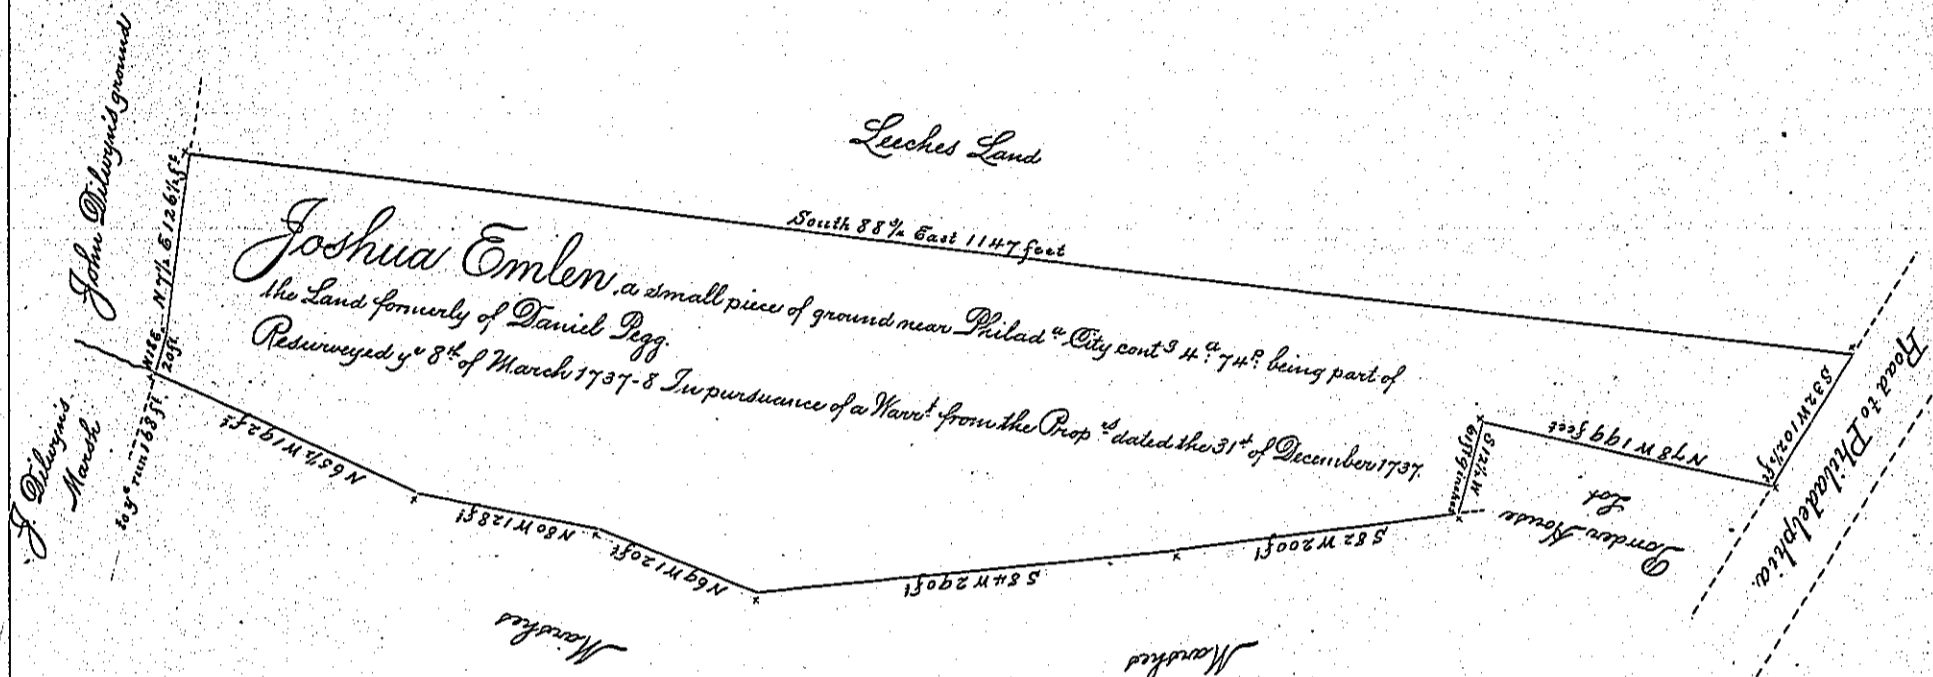 Leeches Land
John Dilwyn's ground
N. 7½ E 126½ ft
N18E
20ft
South 88¾ East 1147 feet
Joshua Emlen, a small piece of ground near Philadᵃ City contᵍ 4ᵃ. 74ᵖ. being part of
the Land formerly of Daniel Pegg.
Resurveyed yᵉ 8ᵗʰ of March 1737-8 In pursuance of a Warrᵗ from the Propʳˢ dated the 31ˢᵗ of December 1737.
J. Dilwyn's
Marsh
to yᵉ run 163 ft
N 65½ W 192 ft
N 80 W 128 ft
N 69 W 120 ft
S 84 W 290 ft
S 82 W 200 ft
S 12½ W
61 ft 9 inches
N 78 W 199 feet
S 32 W 102½ ft
Powder House
Lot
Road to Philadelphia.
Marshes
Marshes